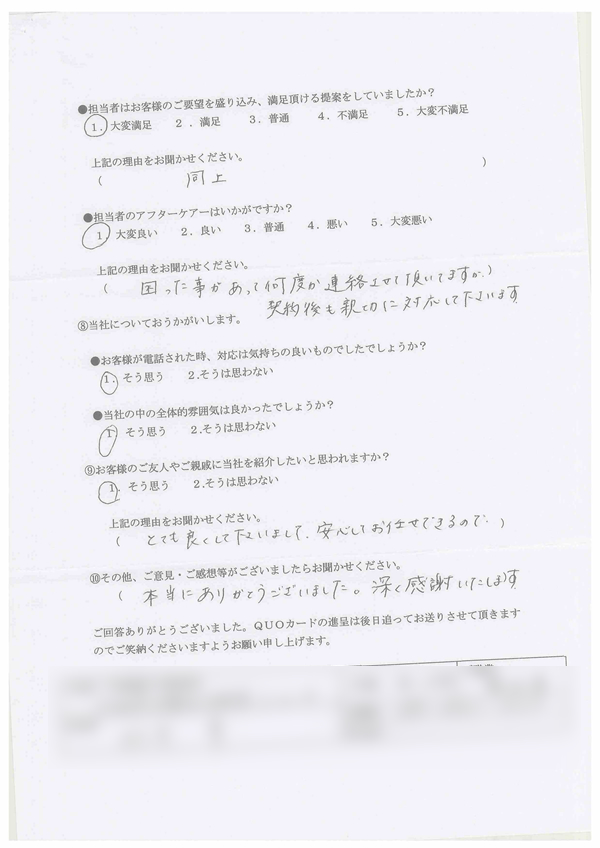 ●担当者はお客様のご要望を盛り込み、満足頂ける提案をしていましたか？
1．大変満足　２．満足　3．普通　4．不満足　5．大変不満足
上記の理由をお聞かせください。
（　同上　）
●担当者のアフターケアーはいかがですか？
1．大変良い　2．良い　3．普通　4．悪い　5．大変悪い
上記の理由をお聞かせください。
（　困った事があって何度か連絡させて頂いてますが、）
契約後も親切に対応して下さいます
⑧当社についておうかがいします。
●お客様が電話された時、対応は気持ちの良いものでしたでしょうか？
1．そう思う　2.そうは思わない
●当社の中の全体的雰囲気は良かったでしょうか？
1　そう思う　2.そうは思わない
⑨お客様のご友人やご親戚に当社を紹介したいと思われますか？
1．そう思う　2.そうは思わない
上記の理由をお聞かせください。
（　とても良くして下さいまして、安心してお任せできるので．　）
⑩その他、ご意見・ご感想等がございましたらお聞かせください。
（　本当にありがとうございました。深く感謝いたします
ご回答ありがとうございました。ＱＵＯカードの進呈は後日追ってお送りさせて頂きます
のでご笑納くださいますようお願い申し上げます。